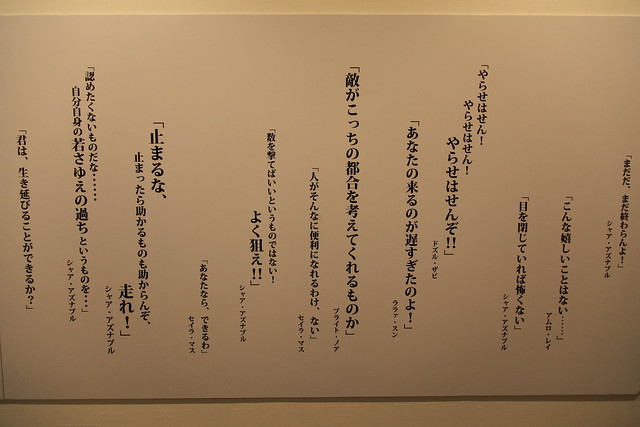 「まだだ、まだ終わらんよ!」
シャア・アズナブル
「こんな嬉しいことはない……」
アムロ・レイ
「目を閉じていれば怖くない」
シャア・アズナブル
「やらせはせん!
やらせはせん!
やらせはせんぞ!!」
ドズル・ザビ
「あなたの来るのが遅すぎたのよ!」
ララァ・スン
「敵がこっちの都合を考えてくれるものか」
ブライト・ノア
「人がそんなに便利になれるわけ、ない」
セイラ・マス
「数を撃てばいいというものではない!
よく狙え!!」
シャア・アズナブル
「あなたなら、できるわ」
セイラ・マス
「止まるな、
止まったら助かるものも助からんぞ、
走れ!」
シャア・アズナブル
「認めたくないものだな……
自分自身の若さゆえの過ちというものを…」
シャア・アズナブル
「君は、生き延びることができるか?」